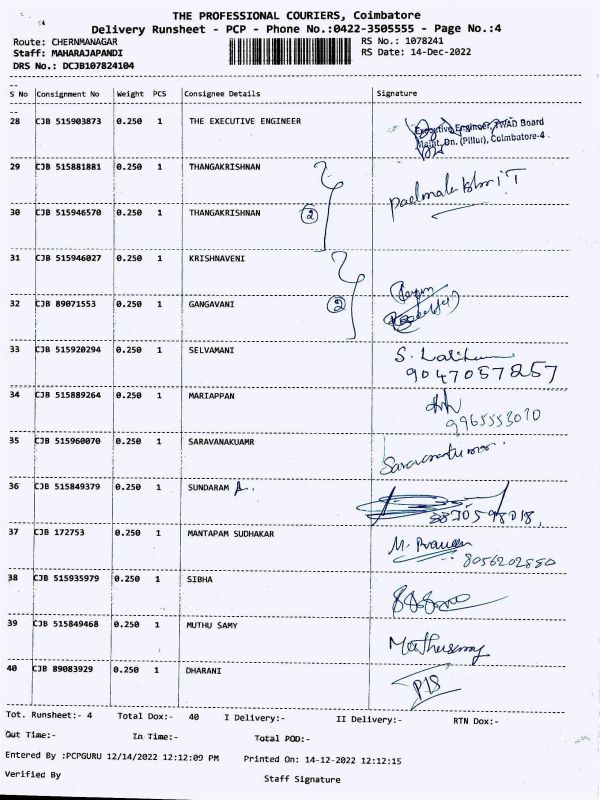 THE PROFESSIONAL COURIERS, Coimbatore
Delivery Runsheet - PCP - Phone No.:0422-3505555 - Page No.:4
Route: CHERNMANAGAR RS No.: 1078241
Staff: MAHARAJAPANDI RS Date: 14-Dec-2022
DRS No.: DCJB107824104
S No Consignment No Weight PCS Consignee Details Signature
28 CJB 515903873 0.250 1 THE EXECUTIVE ENGINEER
Executive Engineer, TWAD Board
Maint. Dn. (Pillur), Coimbatore-4
29 CJB 515881881 0.250 1 THANGAKRISHNAN
30 CJB 515946570 0.250 1 THANGAKRISHNAN 2
31 CJB 515946027 0.250 1 KRISHNAVENI
32 CJB 89071553 0.250 1 GANGAVANI 2
33 CJB 515920294 0.250 1 SELVAMANI S.
9047057857
34 CJB 515889264 0.250 1 MARIAPPAN
9965553010
35 CJB 515960070 0.250 1 SARAVANAKUAMR
36 CJB 515849379 0.250 1 SUNDARAM A.
37 CJB 172753 0.250 1 MANTAPAM SUDHAKAR M. Praveen
8056202880
38 CJB 515935979 0.250 1 SIBHA
39 CJB 515849468 0.250 1 MUTHU SAMY Muthusamy
40 CJB 89083929 0.250 1 DHARANI
Tot. Runsheet:- 4 Total Dox:- 40 I Delivery:- II Delivery:- RTN Dox:-
Out Time:- In Time:- Total POD:-
Entered By :PCPGURU 12/14/2022 12:12:09 PM Printed On: 14-12-2022 12:12:15
Verified By Staff Signature